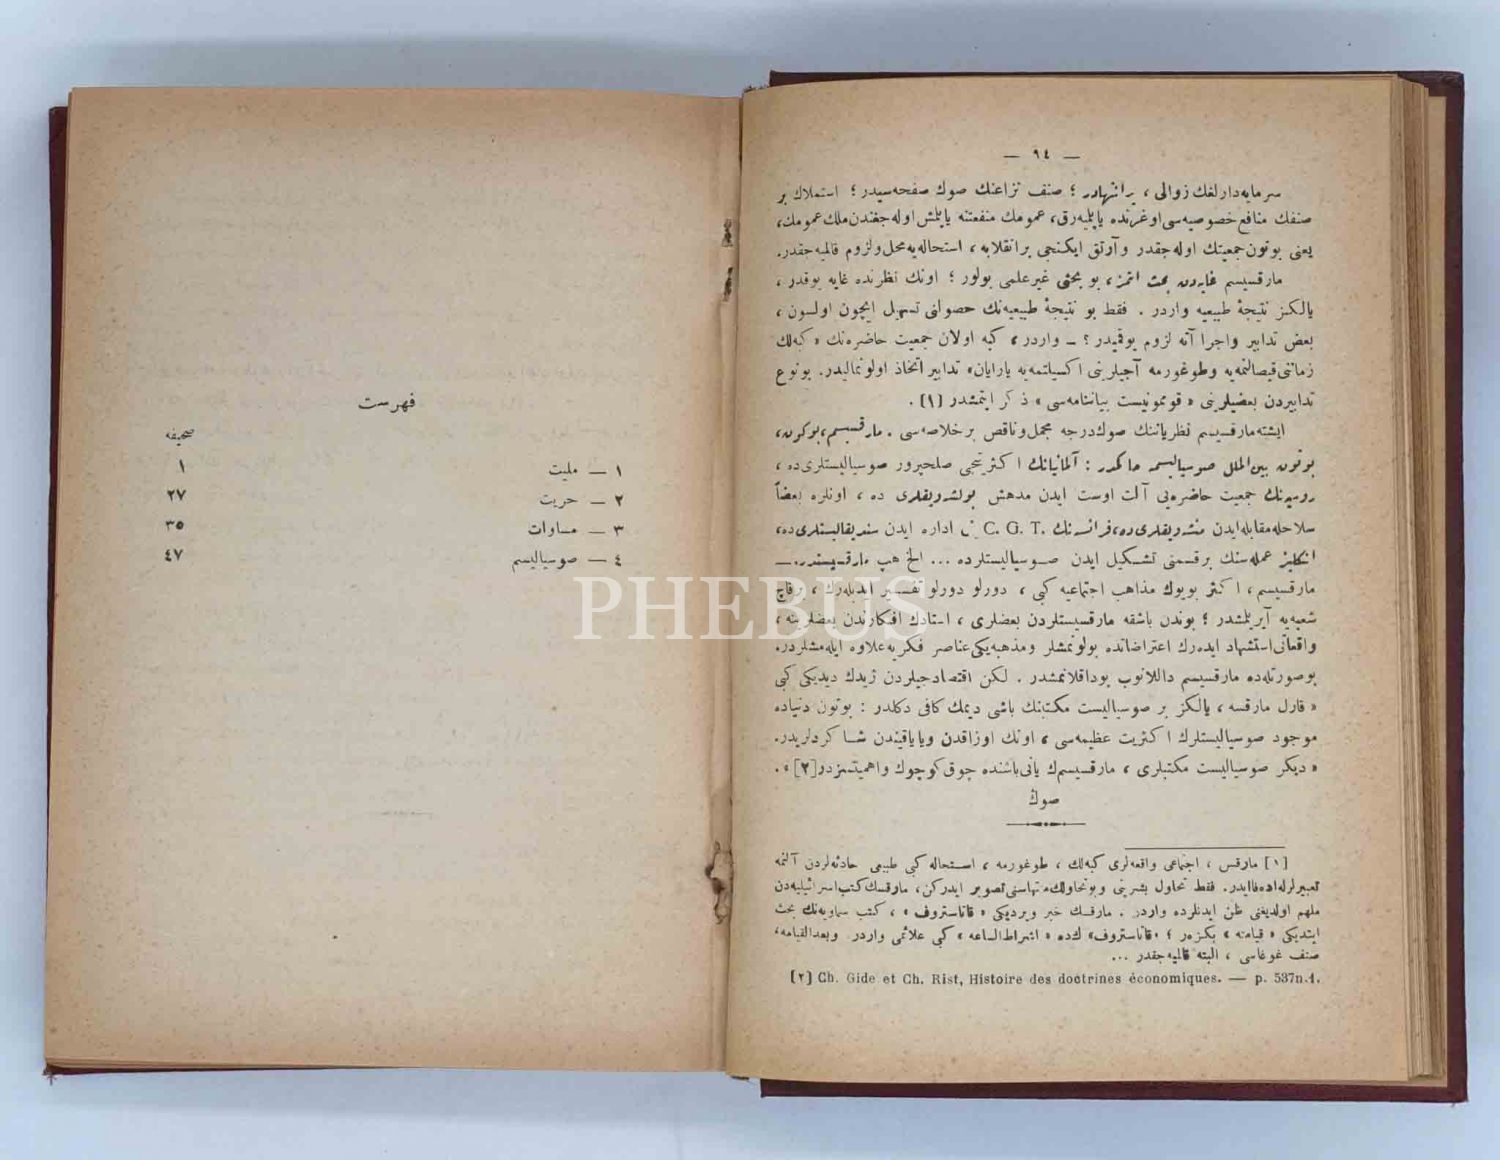 — ٩٤ —
سرمایه‌دارلغك زوالی ، بر اشهاددر ؛ صنف نزاعنك صوك صفحه‌سیدر ؛ استملاك بر
صنفك منافع خصوصیه‌سی اوغرنده یاپلمیه‌رق، عمومك منفعتنه یاپلمش اوله‌جغندن ملك عمومك،
یعنی بوتون جمعیتك اوله‌جقدر و آرتق ایكنجی بر انقلابه ، استحاله‌یه محل و لزوم قالمیه‌جقدر.
ماركسیسم غایه‌دن بحث ایتمز ، بو بحثی غیر علمی بولور ؛ اونك نظرنده غایه یوقدر ،
یالكز نتیجهٔ طبیعیه واردر . فقط بو نتیجهٔ طبیعیه‌نك حصولنی تسهیل ایچون اولسون ،
بعض تدابیر و اجرا آته لزوم یوقمیدر ؟ ــ واردر ، كبه اولان جمعیت حاضره‌نك « كبه‌لك
زماننی قیصالتمه‌یه و طوغورمه آجیلرینی اكسیلتمه‌یه یارایان» تدابیر اتخاذ اولونمالیدر. بو نوع
تدابیردن بعضیلرینی « قومونیست بیاننامه‌سی » ذكر ایتمشدر (١) .
ایشته مارقسیسم نظریاتنك صوك درجه مجمل و ناقص بر خلاصه‌سی . مارقسیسم ، بوكون،
بوتون بین‌الملل صوسیالیسمه حاكمدر : آلمانیانك اكثریتجی صلحپرور صوسیالیستلری ده ،
روسیه‌نك جمعیت حاضره‌یی آلت اوست ایدن مدهش بولشه‌ویقلری ده ، اونلره بعضاً
سلاحله مقابله ایدن منشه‌ویقلری ده، فرانسه‌نك .C. G. T ی اداره ایدن سندیقالیستلری ده،
انكلیز عمله‌سنك بر قسمنی تشكیل ایدن صوسیالیستلرده ... الخ هپ مارقسیستدر. ــ
مارقسیسم ، اكثر بویوك مذاهب اجتماعیه كبی ، دورلو دورلو تفسیر ایدیله‌رك ، بر قاچ
شعبه‌یه آیریلمشدر ؛ بوندن باشقه مارقسیستلردن بعضلری ، استادك افكارندن بعضلرینه ،
واقعاتی استشهاد ایده‌رك اعتراضاتده بولونمشلر و مذهبه یكی عناصر فكریه علاوه ایله‌مشلردر.
بو صورتله‌ده مارقسیسم داللانوب بوداقلانمشدر . لكن اقتصادجیلردن ژیدك دیدیكی كبی
« قارل مارقسه ، یالكز بر صوسیالیست مكتبنك باشی دیمك كافی دكلدر : بوتون دنیاده
موجود صوسیالیستلرك اكثریت عظیمه‌سی ، اونك اوزاقدن ویا یاقیندن شاكردلریدر.
« دیكر صوسیالیست مكتبلری ، مارقسیسمك یانی باشنده چوق كوچوك و اهمیتسزدر [٢] » .
صوك
[١] مارقس ، اجتماعی واقعه‌لری كبه‌لك ، طوغورمه ، استحاله كبی طبیعی حادثه‌لردن آلنمه
تعبیرلرله افاده ایدر. فقط تحاول بشرینی و بو تحاولك منتهاسنی تصویر ایدركن، مارقسك كتب اسرائیلیه‌دن
ملهم اولدیغنی ظن ایدنلرده واردر . مارقسك خبر ویردیكی « قاتاستروف » ، كتب سماویه‌نك بحث
ایتدیكی « قیامته » بكزه‌ر ؛ «قاتاستروف» كده « اشراط‌الساعه » كبی علائمی واردر و بعدالقیامه،
صنف غوغاسی ، البته قالمیه‌جقدر ...
(٢) Ch. Gide et Ch. Rist, Histoire des doctrines économiques. — p. 537n.1.
فهرست
صحیفه
١ — ملیت ١
٢ — حریت ٢٧
٣ — مساوات ٣٥
٤ — صوسیالیسم ٤٧
PHEBUS